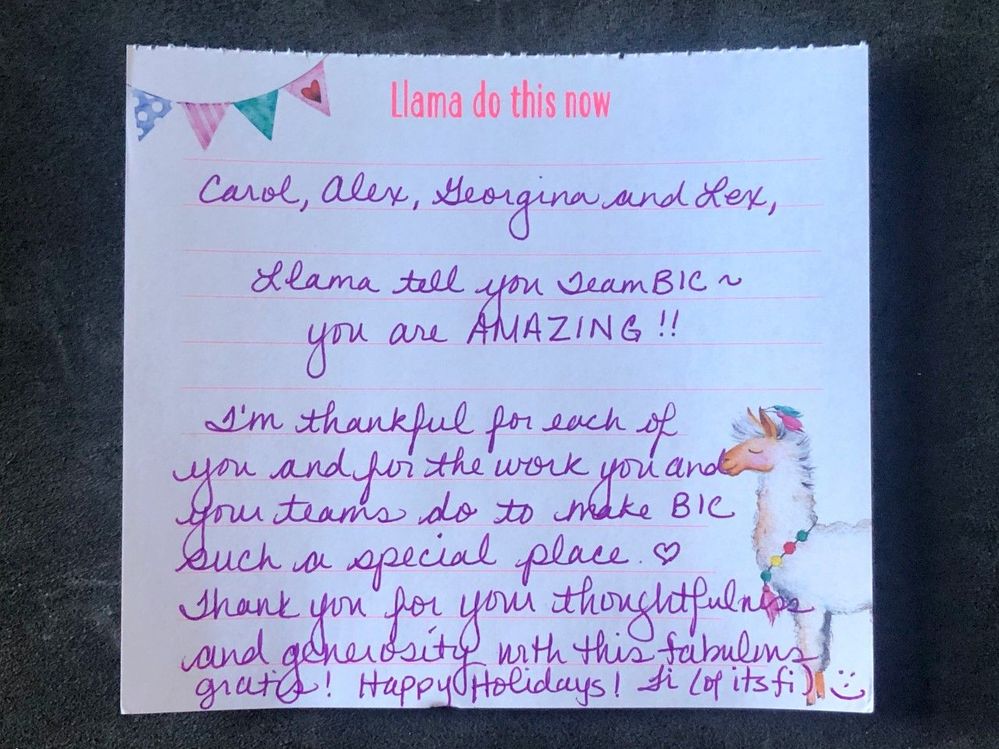 Llama do this now
Carol, Alex, Georgina and Lex,
Llama tell you Team BIC ~
you are AMAZING!!
I'm thankful for each of
you and for the work you and
your teams do to make BIC
such a special place. ♡
Thank you for your thoughtfulness
and generosity with this fabulous
gratis! Happy Holidays! Fi (of itsfi) :)